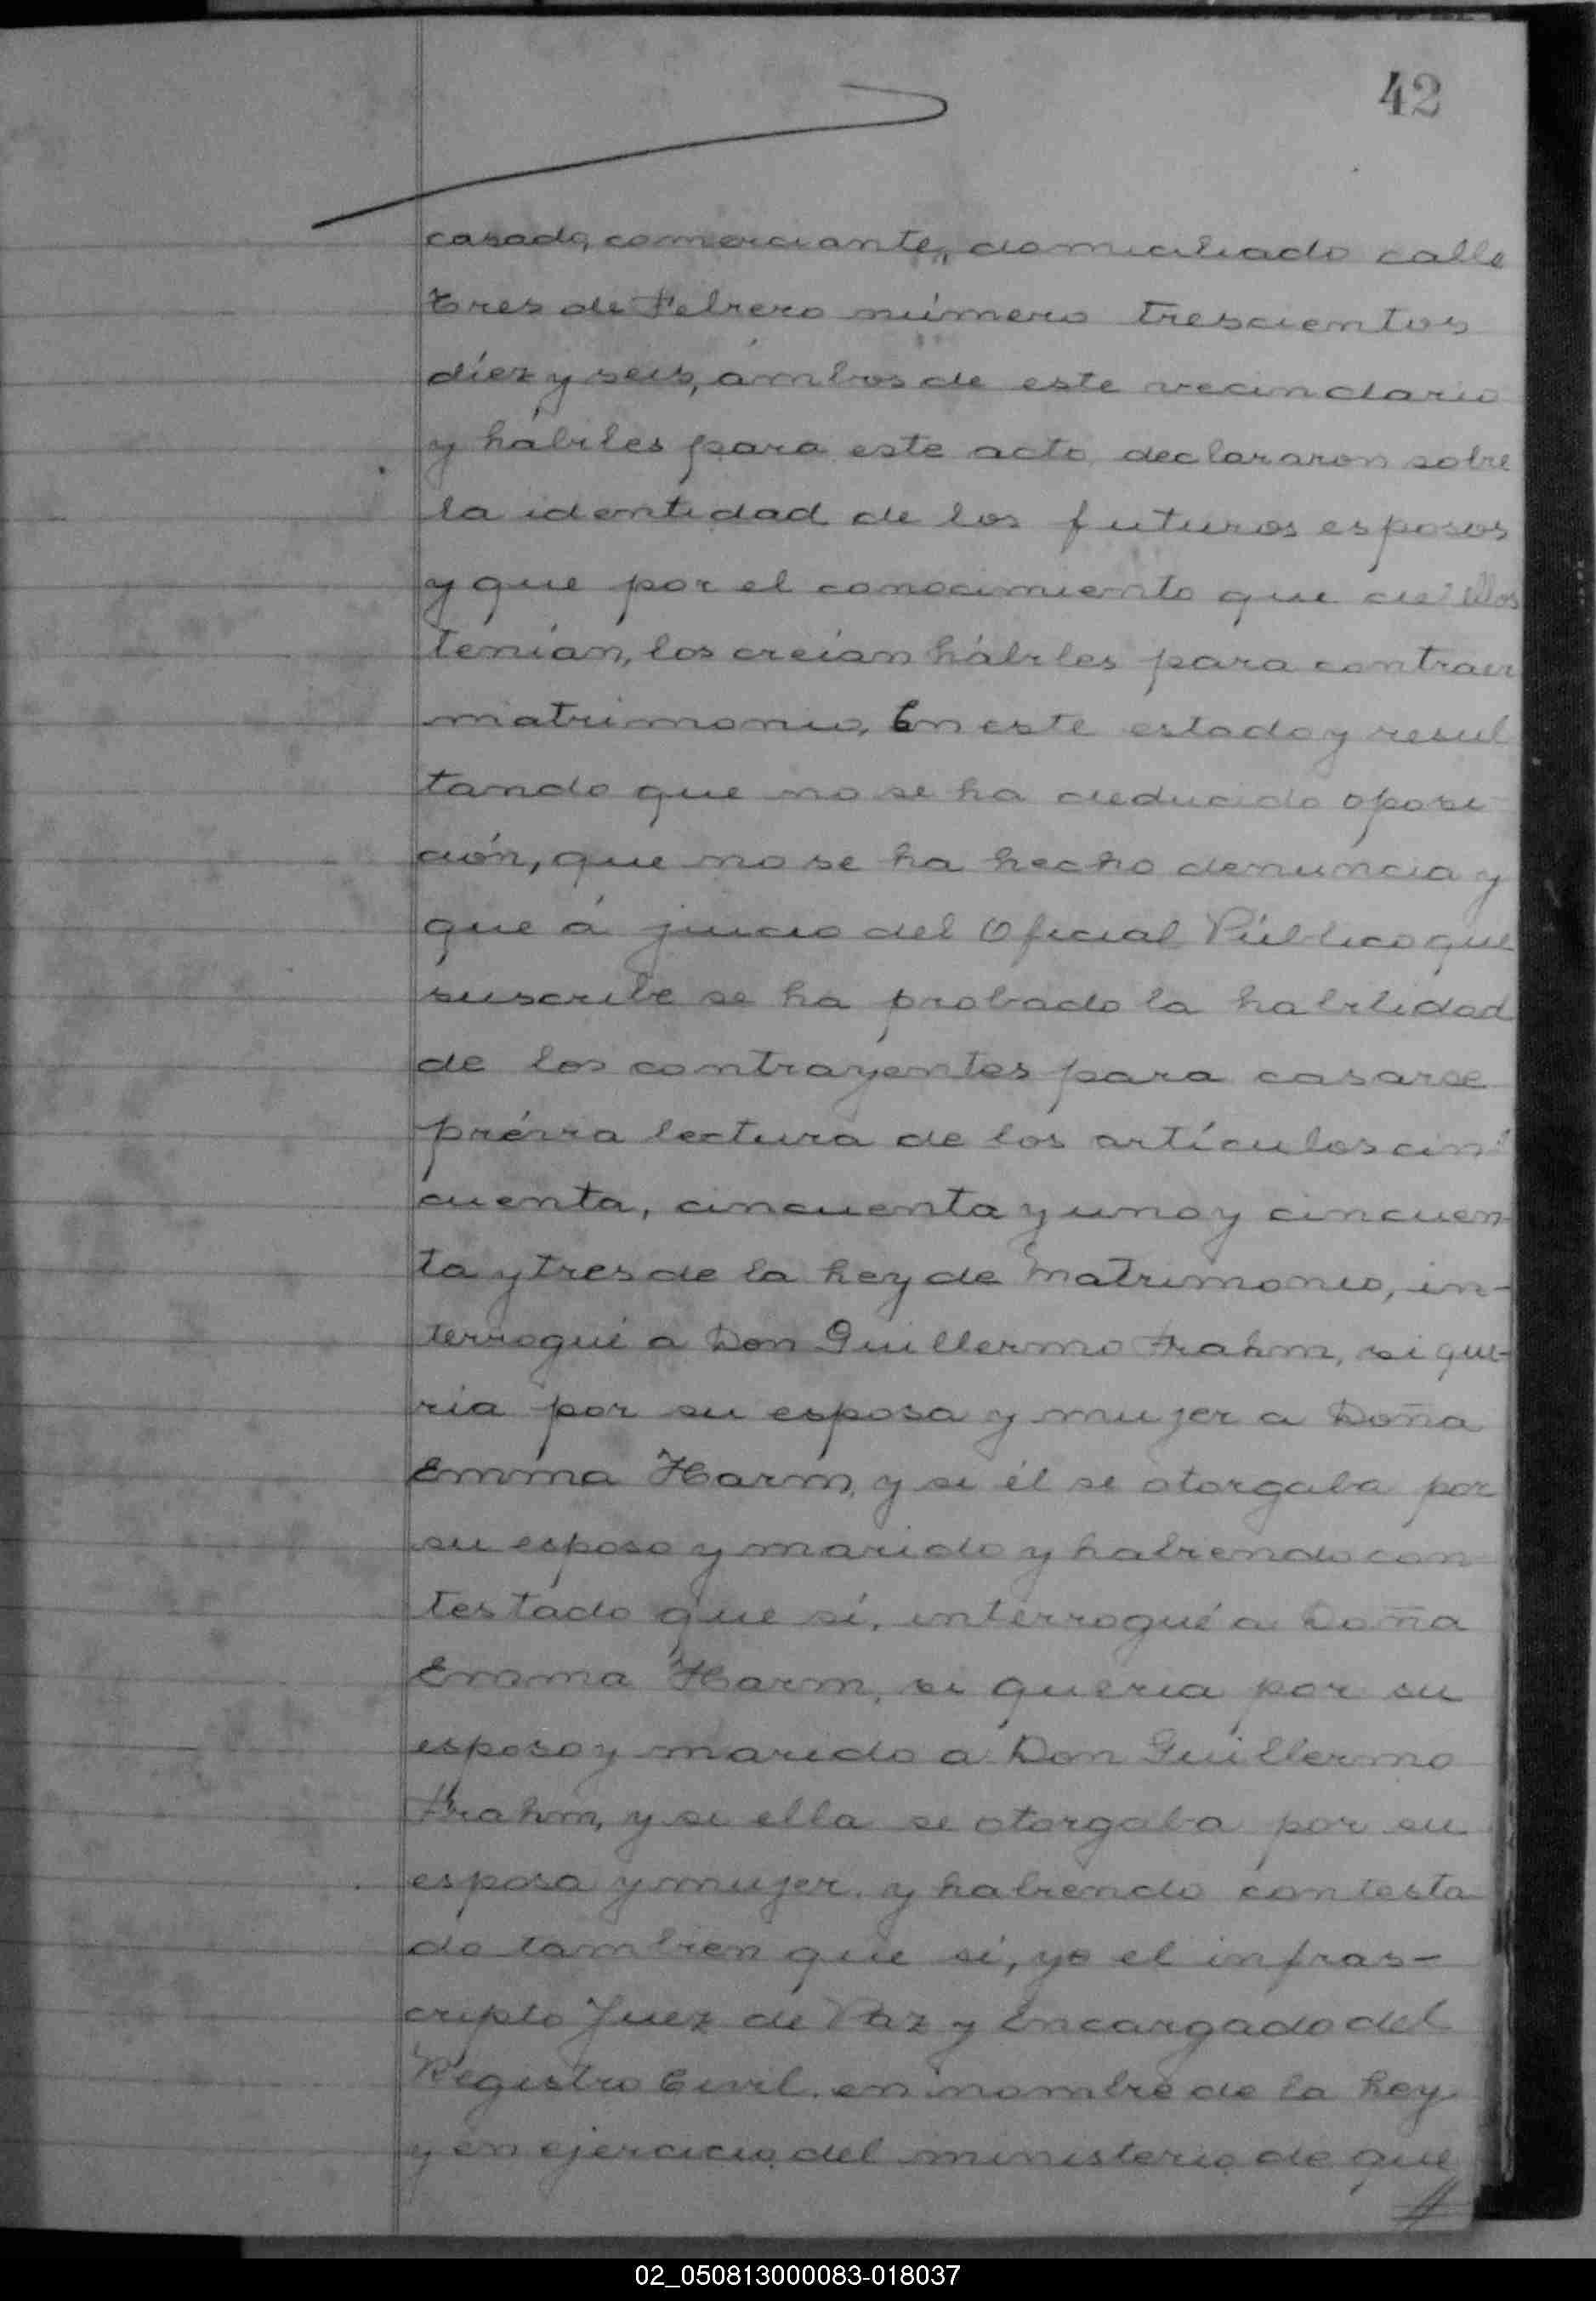 42
casado, comerciante, domiciliado calle
Tres de Febrero número trescientos
díez y seis, ámbos de este vecindario
y hábiles para este acto, declararon sobre
la identidad de los futuros esposos
y que por el conocimiento que de ellos
tenían, los creían hábiles para contraer
matrimonio, En este estado y resul
tando que no se ha deducido oposi
ción, que no se ha hecho denuncia y
que á juicio del Oficial Público que
suscribe se ha probado la habilidad
de los contrayentes para casarse
prévia lectura de los artículos cin
cuenta, cincuenta y uno y cincuen-
ta y tres de la Ley de Matrimonio, in-
terrogué a Don Guillermo Frahm, si que-
ria por su esposa y mujer a Doña
Emma Harm, y si él se otorgaba por
su esposo y marido y habiendo con
testado que sí, interrogué a Doña
Emma Harm, si queria por su
esposo y marido a Don Guillermo
Frahm, y si ella se otorgaba por su
esposa y mujer, y habiendo contesta
do tambien que sí, yo el infras-
cripto Juez de Paz y Encargado del
Registro Civil, en nombre de la Ley
y en ejercicio del ministerio de que
//
02_050813000083-018037